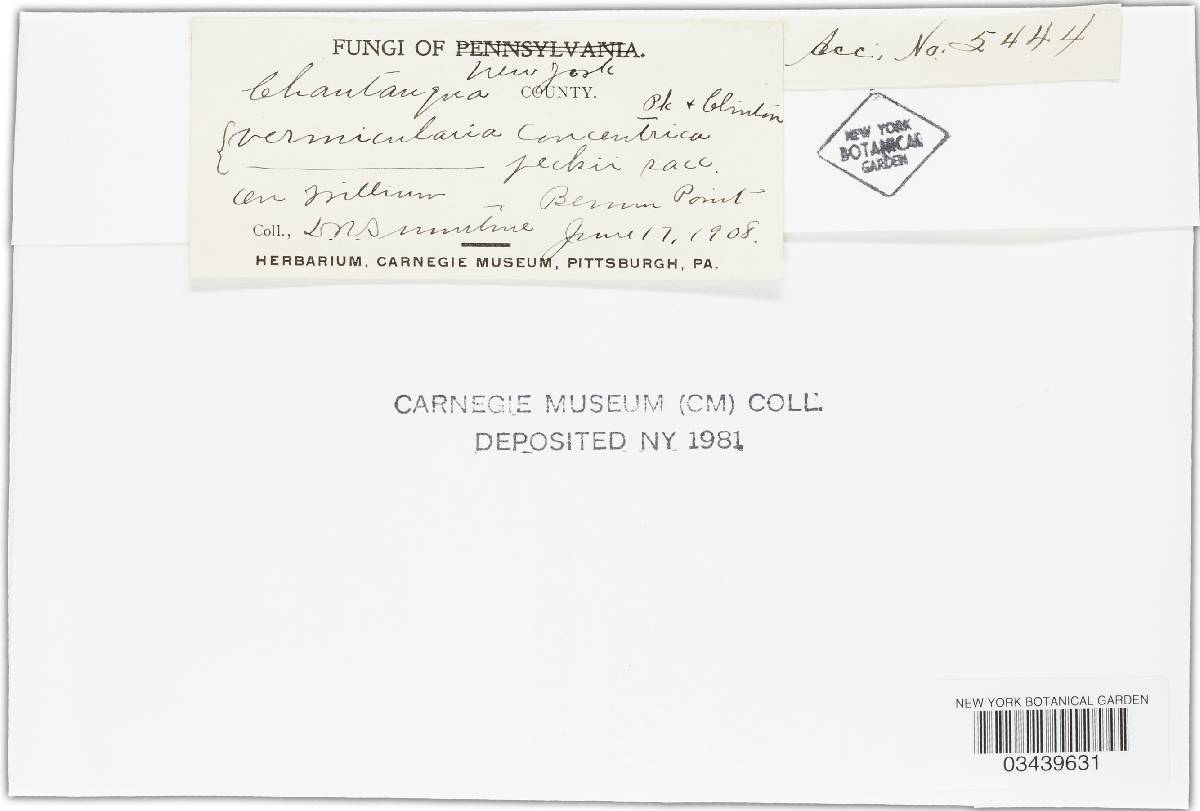 FUNGI OF PENNSYLVANIA.
New York
Chautauqua COUNTY.
Pk & Clinton
{ Vermicularia concentrica
———— peckii sacc.
on Trillium - Bemus Point
Coll., D R Sumstine June 17, 1908.
HERBARIUM, CARNEGIE MUSEUM, PITTSBURGH, PA.
Acc. No. 5444
NEW YORK
BOTANICAL
GARDEN
CARNEGIE MUSEUM (CM) COLL.
DEPOSITED NY 1981
NEW YORK BOTANICAL GARDEN
03439631